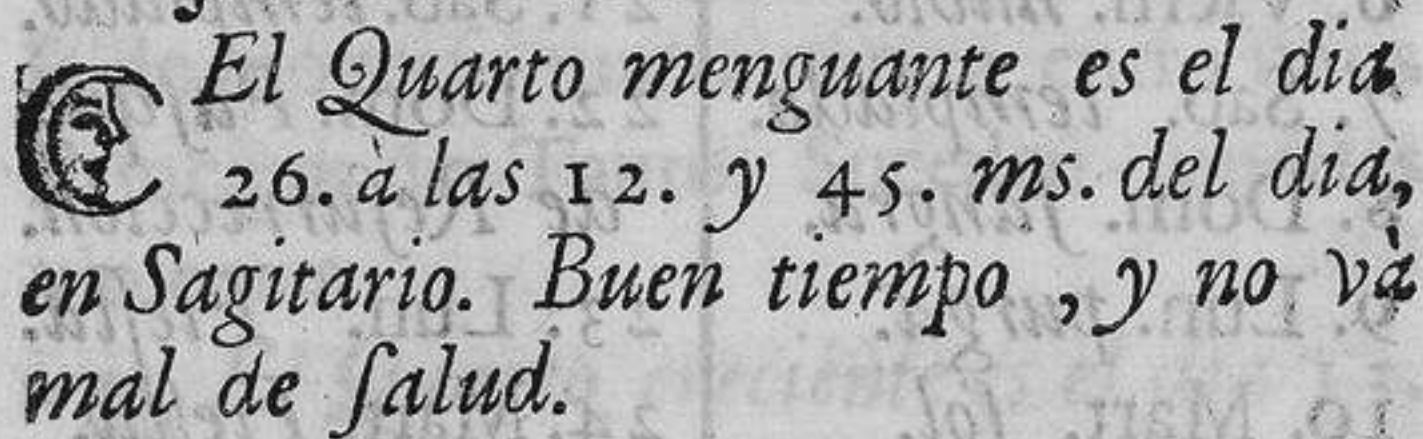 El Quarto menguante es el dia
26. à las 12. y 45. ms. del dia,
en Sagitario. Buen tiempo, y no và
mal de ſalud.